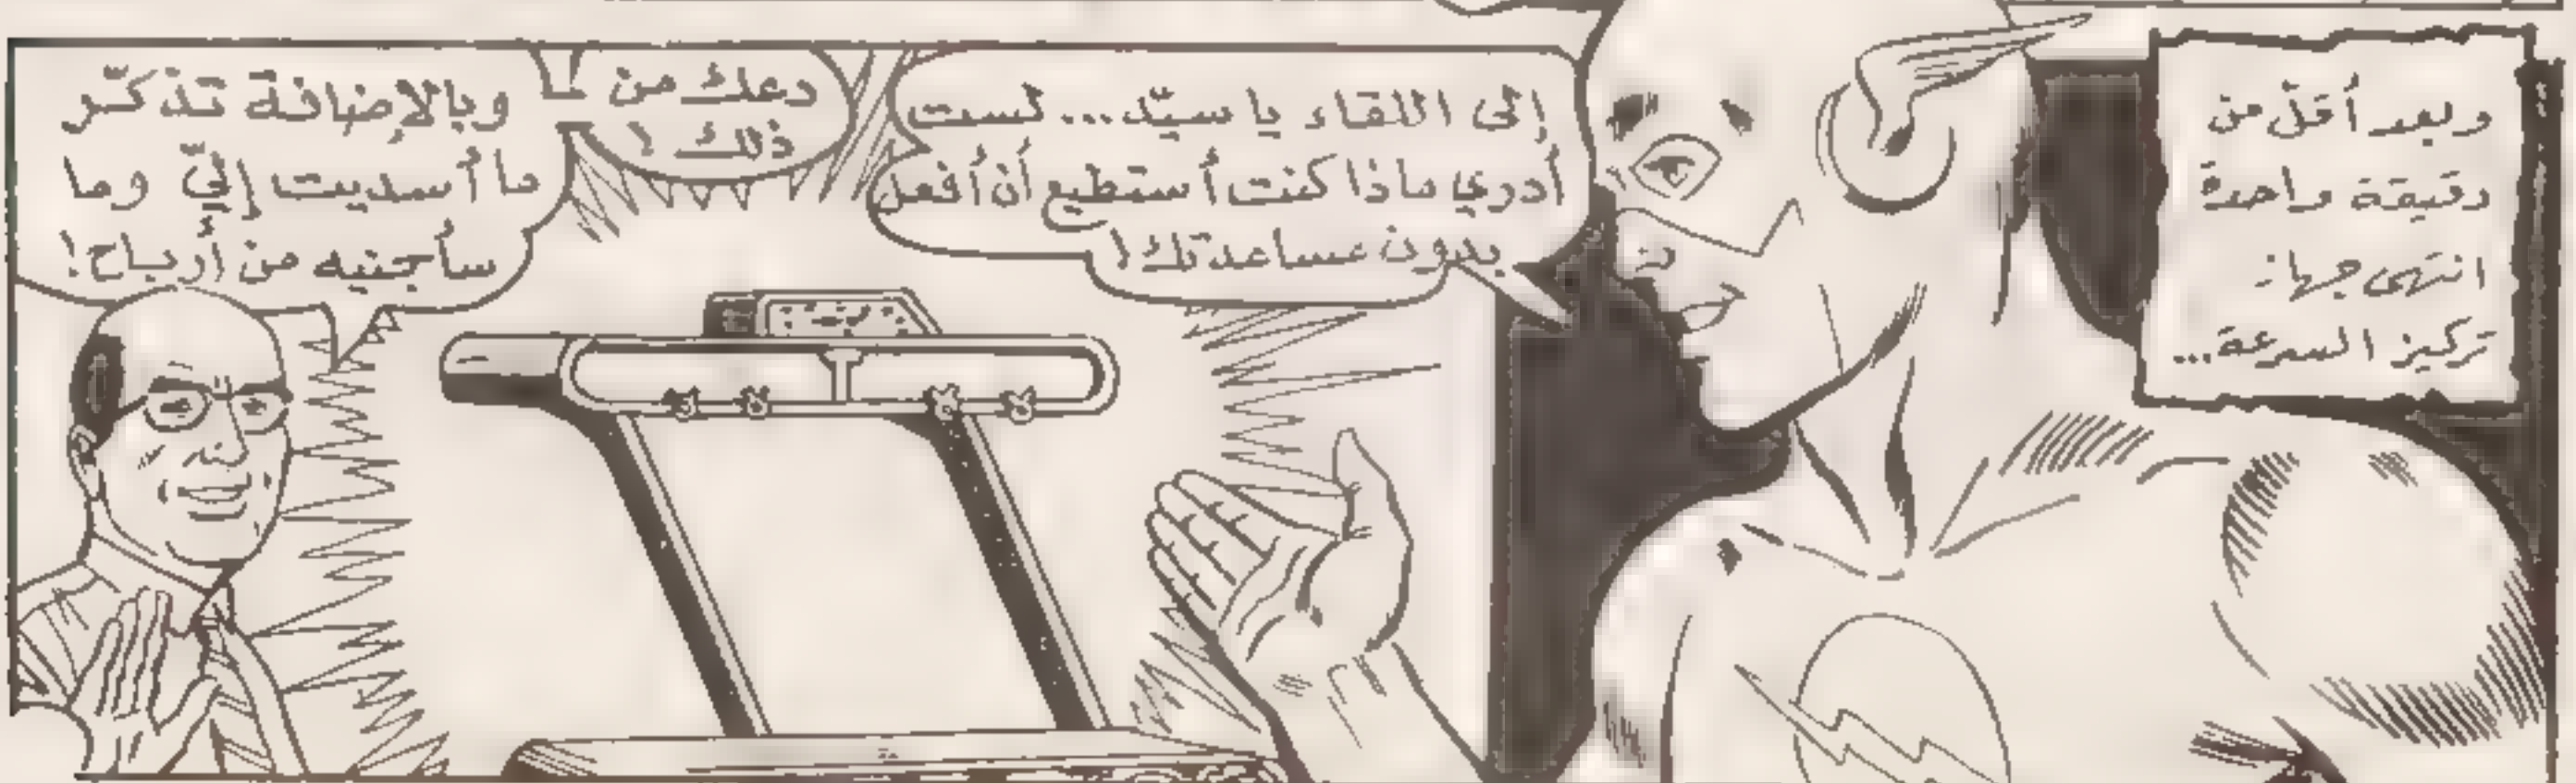 وبعد أقلّ من
دقيقة واحدة
انتهى جهاز
تركيز السرعة...
إلى اللقاء يا سيّد... لست
أدري ماذا كنت أستطيع أن أفعل
بدون مساعدتك!
دعك من
ذلك!
وبالإضافة تذكّر
ما أسديت إليّ وما
سأجنيه من أرباح!